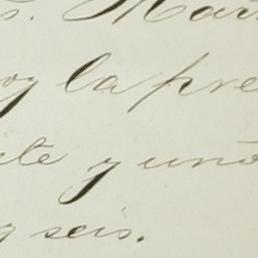 s. Mar
oy la pre
ite y uno
y seis.